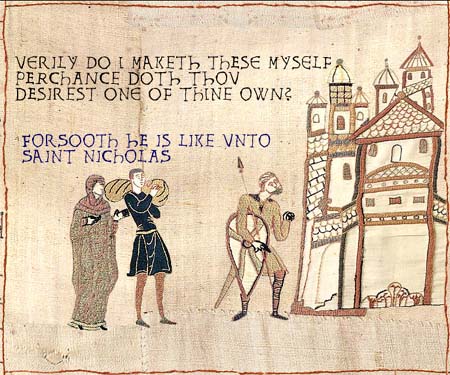 VERILY DO I MAKETH THESE MYSELF
PERCHANCE DOTH THOV
DESIREST ONE OF THINE OWN?
FORSOOTH HE IS LIKE VNTO
SAINT NICHOLAS